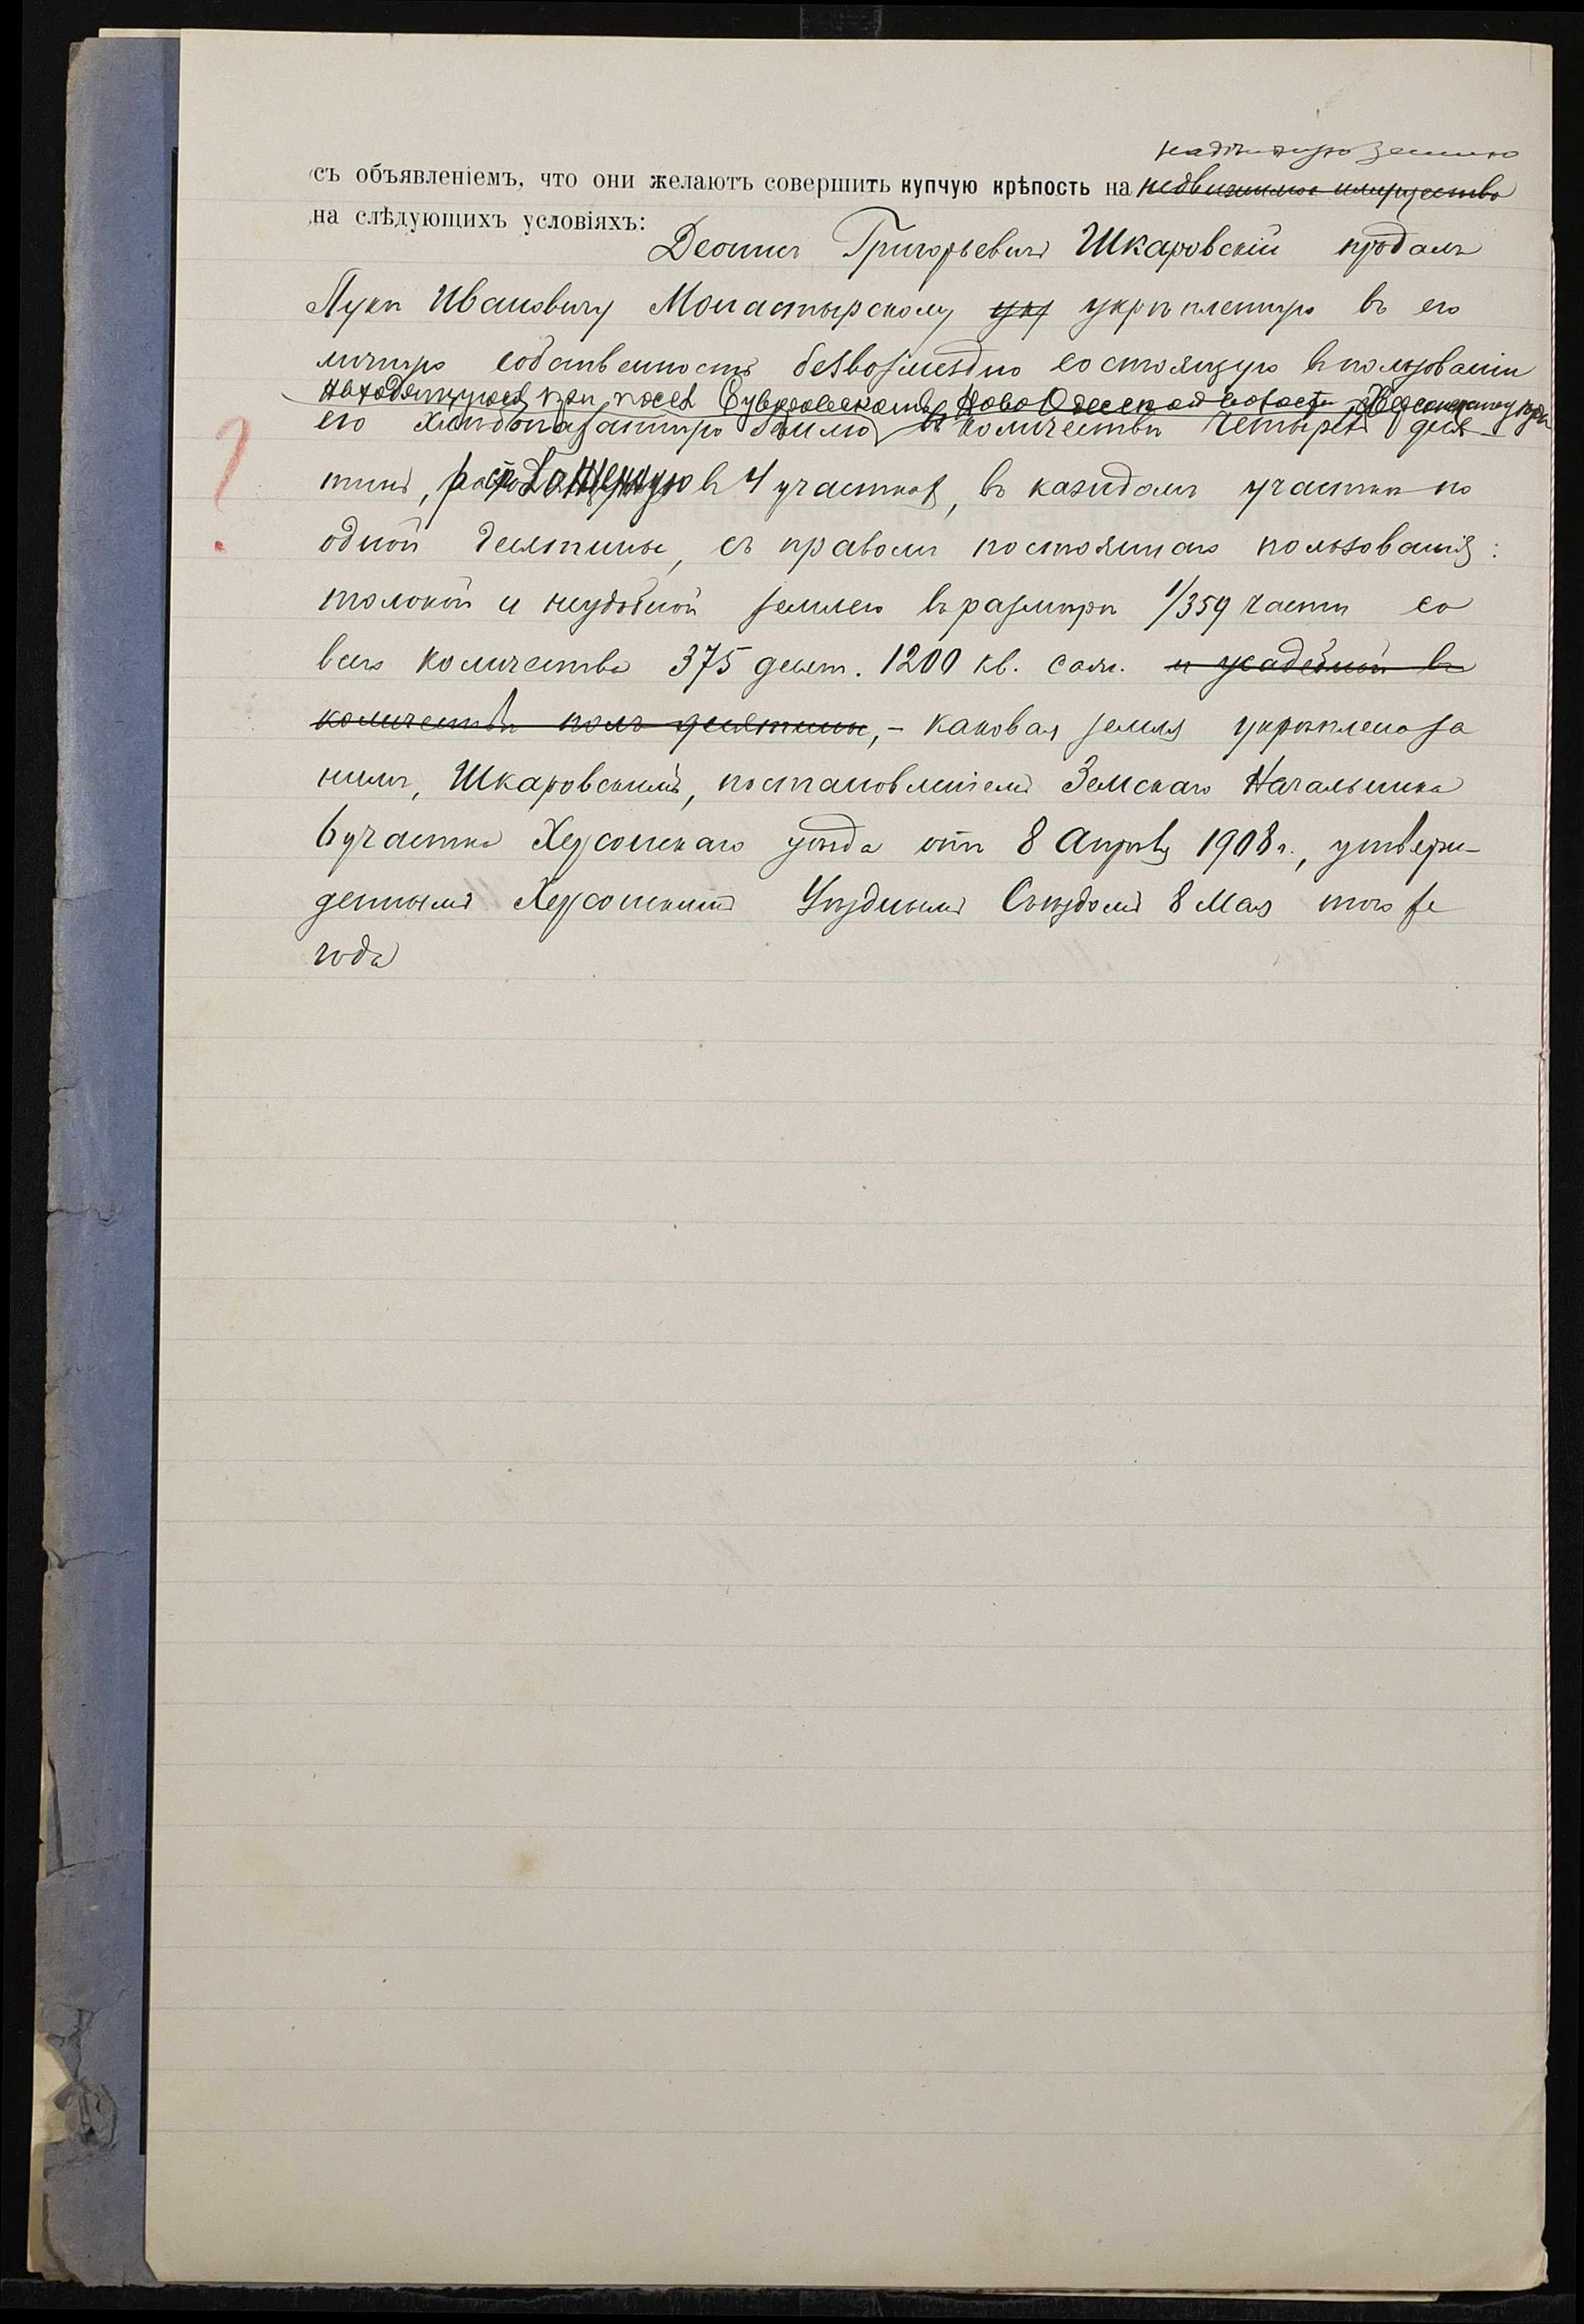 надѣльную землю
съ объявленіемъ, что они желаютъ совершить купчую крѣпость на недвижимое имущество
на слѣдующихъ условіяхъ:
Деонисъ Григорьевичъ Шкаровскій продалъ
Лукѣ Ивановичу Монастырскому укр укрѣпленную въ его
личную собственность безвозмездно состоящую въ пользованіи
находящуюся при посел Суворовскомъ Ново Одесской волости Херсонскаго
его хлѣбопахатную землю въ количествѣ четырехъ деся
тинъ, въ 4 участкахъ, въ каждомъ участкѣ по
одной десятинѣ, съ правомъ постояннаго пользованія:
толокой и неудобной землею въ размѣрѣ 1/359 части со
всего количества 375 десят. 1200 кв. саж. и усадебной въ
количествѣ полъ десятины, - каковая земля укрѣплена за
нимъ, Шкаровскимъ, постановленіемъ Земскаго Начальника
6 участка Херсонскаго уѣзда отъ 8 Апрѣля 1908 г., утверж-
деннымъ Херсонскимъ Уѣзднымъ Съѣздомъ 8 Мая того же
года